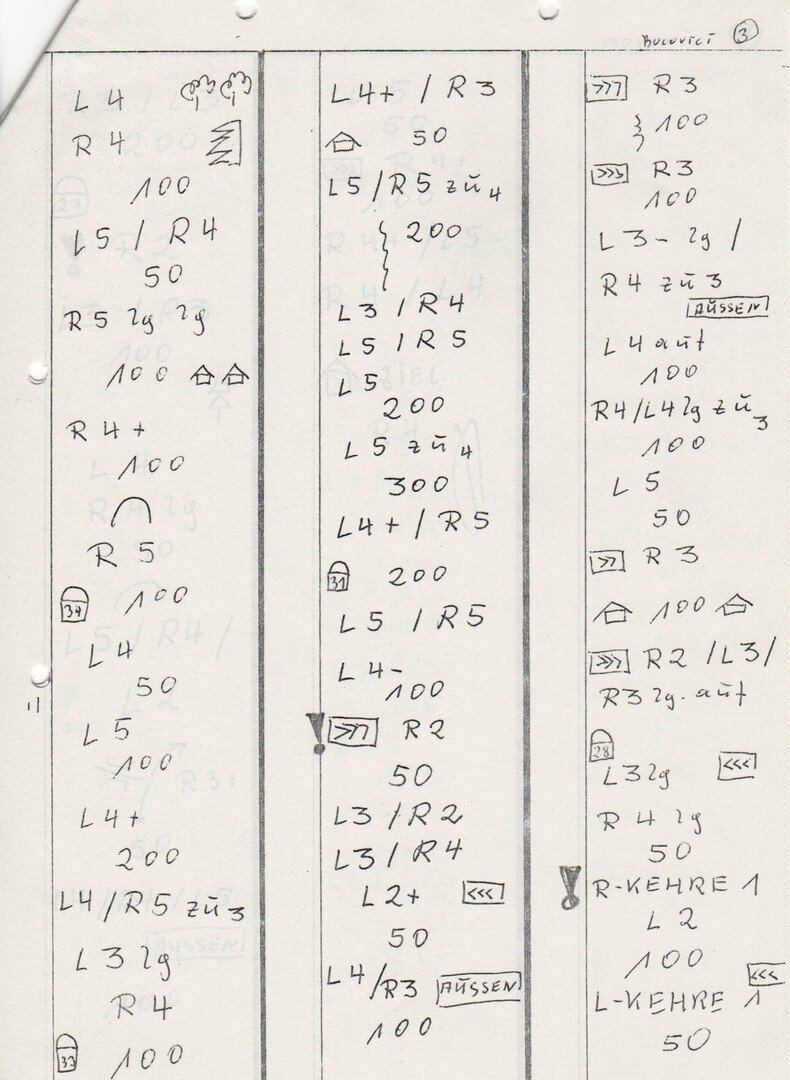 BOLOVICI 3
L 4
R 4
100
L 5 / R 4
50
R 5 lg lg
100
R 4 +
100
R 5
34 100
L 4
50
L 5
100
L 4+
200
L4 / R5 zu 3
L 3 lg
R 4
33 100
L4+ / R 3
50
L5 / R5 zu 4
200
L 3 / R 4
L 5 / R 5
L 5
200
L 5 zu 4
300
L4+ / R 5
31 200
L 5 / R 5
L 4-
100
! >>> R 2
50
L3 / R 2
L3 / R 4
L 2+ <<<
50
L4 / R3 AUSSEN
100
>>> R 3
100
>>> R 3
100
L 3 - lg /
R 4 zu 3
AUSSEN
L 4 auf
100
R4/L4 lg zu 3
100
L 5
50
>> R 3
100
>>> R 2 / L 3 /
R 3 lg. auf
28
L 3 lg <<<
R 4 lg
50
! R-KEHRE 1
L 2
100
<<<
L-KEHRE 1
50